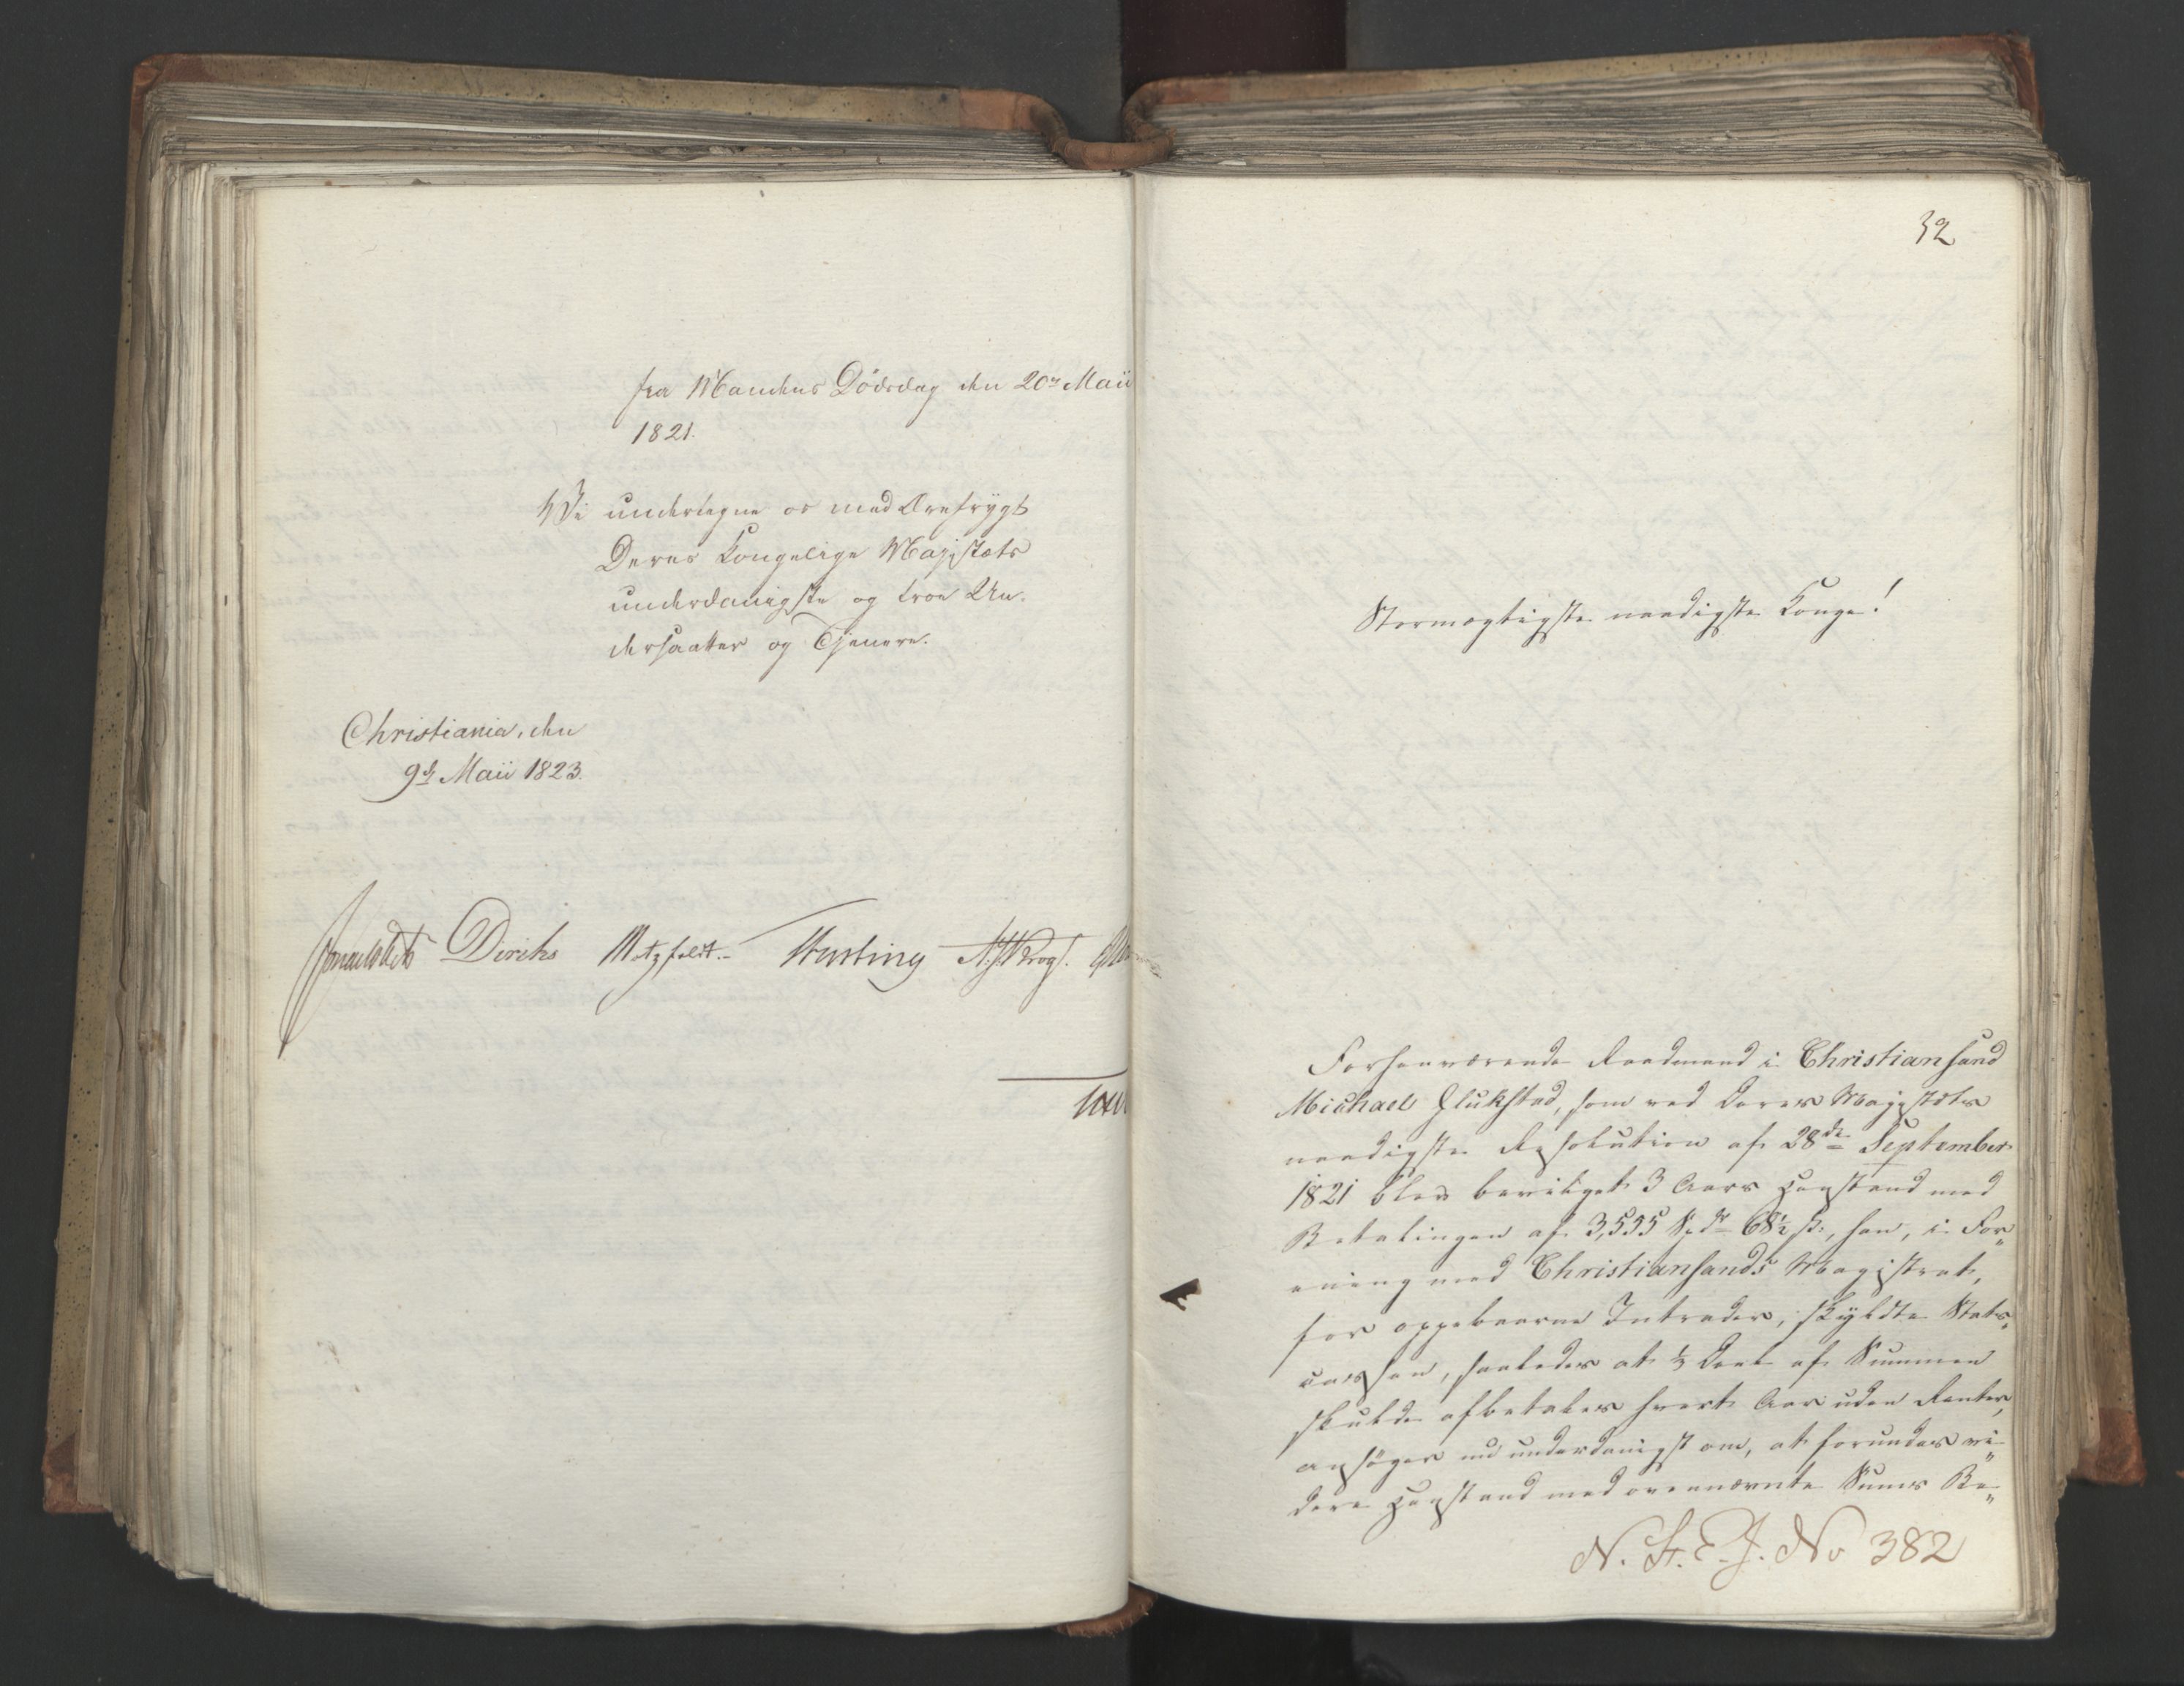 fra Mandens Dødsdag den 20de Maii
1821.
Vi undertegne os med Ærefrygt
Deres Kongelige Majestæts
underdanigste og troe Un-
dersaatter og Tjenere.
Christiania, den
9de Maii 1823.
Diriks Motzfeldt. Krog
32
Stormægtigste naadigste Konge!
Forhenværende Raadmand i Christiansand
Michael Glukstad, som ved Deres Majestæts
naadigste Resolution af 28de September
1821 blev bevilget 3 Aars Henstand med
Betalingen af 3,535 Spdr 68½ ß., han, i For„
ening med Christiansands Magistrat,
for oppebaarne Intrader, skyldte Stats„
cassen, saaledes at ⅓ Deel af Summen
skulde afbetales hvert Aar uden Renter,
ansøger nu underdanigst om, at forundes vi„
dere Henstand med ovennævnte Sums Be„
N. F. E. J. No 382